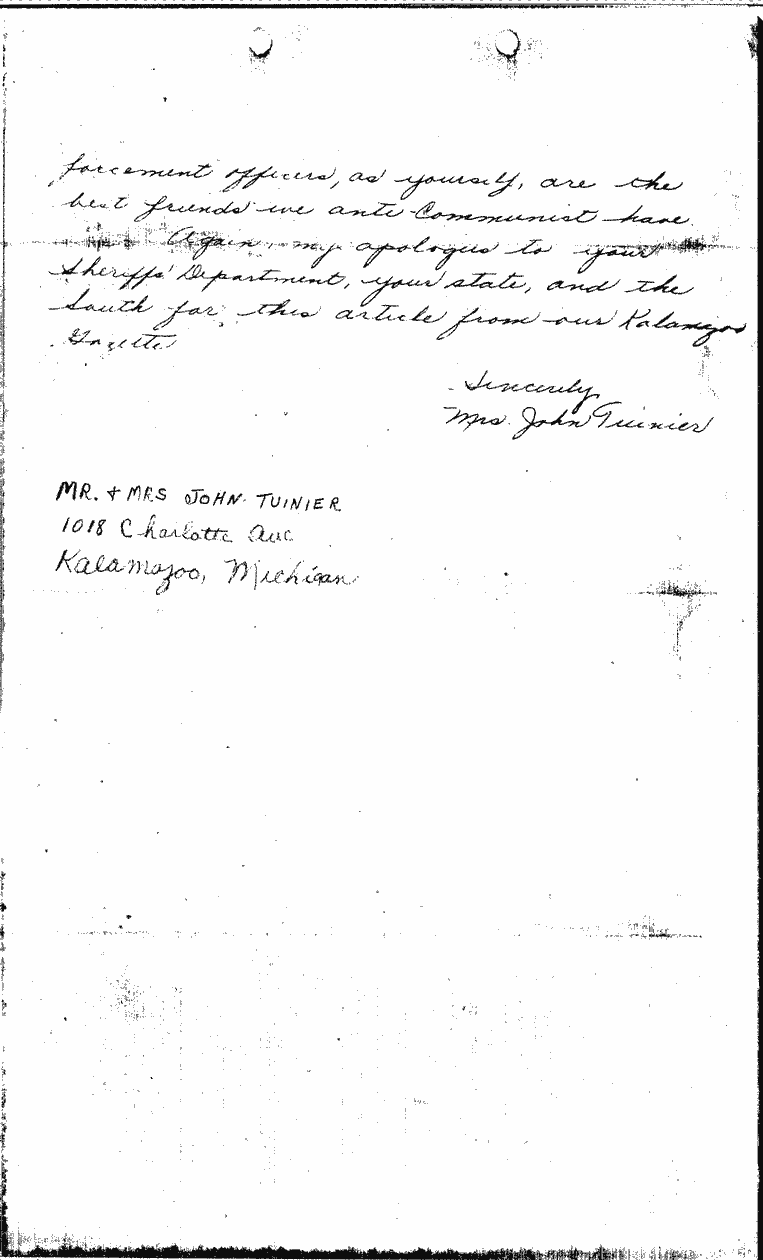 forcement officers, as yourself, are the
best friends we ante-Communist have.
Again, my apologies to your
Sheriffs' Department, your state, and the
South for this article from our Kalamazoo
Gazette
Sincerely,
Mrs. John Tuinier
MR. + MRS JOHN TUINIER
1018 Charlotte Ave
Kalamazoo, Michigan